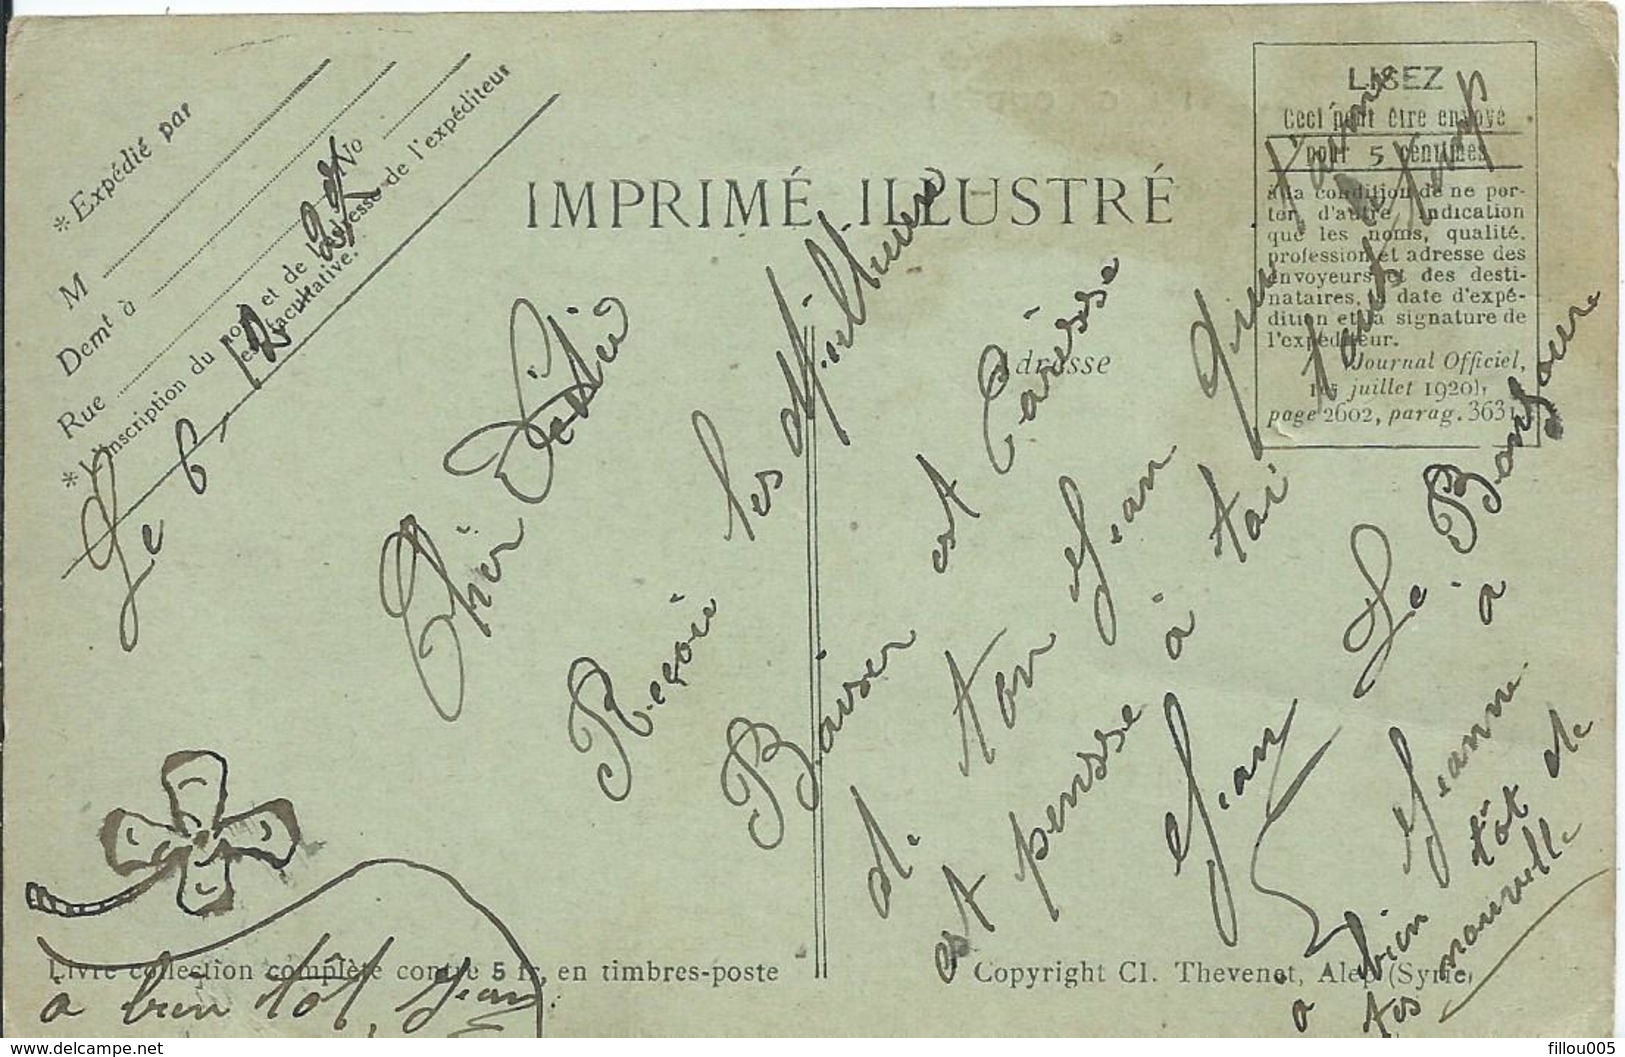 * Expédié par
M
Demt à
No
Rue
* L'inscription du nom et de l'adresse de l'expéditeur
est facultative.
Le 6-12
IMPRIMÉ ILLUSTRÉ
LISEZ
Ceci peut être envoyé
pour 5 centimes
à la condition de ne por-
ter d'autre indication
que les noms, qualité,
profession et adresse des
envoyeurs et des desti-
nataires, la date d'expé-
dition et la signature de
l'expéditeur.
Journal Officiel,
juillet 1920,
page 2602, parag. 3631.
Adresse
Chèr
Reçoie les Meilleure
Baiser est Carèsse
de ton Jean qui t'aime
est pensse à toi tout temp
Jean
Le Bonjoure
à Jeanne
à bien tôt de
tes nouvelle
à bien tôt, Jean
Livre collection complète contre 5 fr, en timbres-poste
Copyright Cl. Thevenet, Alep (Syrie)
https://www.delcampe.net
fillou005